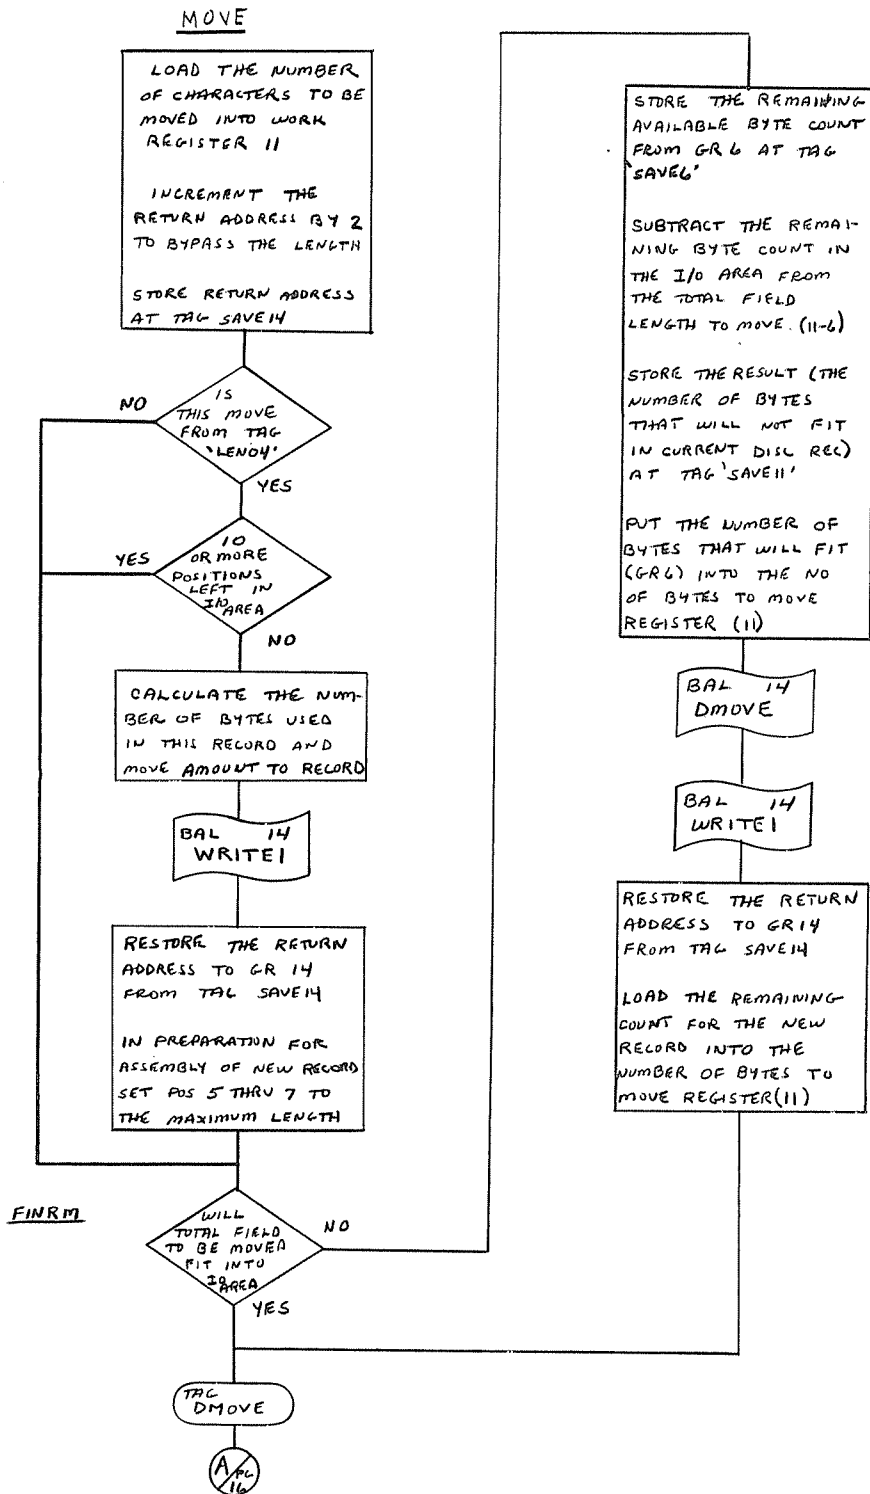 MOVE
LOAD THE NUMBER
OF CHARACTERS TO BE
MOVED INTO WORK
REGISTER 11
INCREMENT THE
RETURN ADDRESS BY 2
TO BYPASS THE LENGTH
STORE RETURN ADDRESS
AT TAG SAVE14
IS
THIS MOVE
FROM TAG
'LEN04'
NO
YES
10
OR MORE
POSITIONS
LEFT IN
I/O
AREA
YES
NO
CALCULATE THE NUM-
BER OF BYTES USED
IN THIS RECORD AND
MOVE AMOUNT TO RECORD
BAL 14
WRITE1
RESTORE THE RETURN
ADDRESS TO GR 14
FROM TAG SAVE14
IN PREPARATION FOR
ASSEMBLY OF NEW RECORD
SET POS 5 THRU 7 TO
THE MAXIMUM LENGTH
FINRM
WILL
TOTAL FIELD
TO BE MOVED
FIT INTO
I/O
AREA
NO
YES
TAG
DMOVE
A
PG
16
STORE THE REMAINING
AVAILABLE BYTE COUNT
FROM GR6 AT TAG
'SAVE6'
SUBTRACT THE REMAI-
NING BYTE COUNT IN
THE I/O AREA FROM
THE TOTAL FIELD
LENGTH TO MOVE. (11-6)
STORE THE RESULT (THE
NUMBER OF BYTES
THAT WILL NOT FIT
IN CURRENT DISC REC)
AT TAG 'SAVE11'
PUT THE NUMBER OF
BYTES THAT WILL FIT
(GR6) INTO THE NO
OF BYTES TO MOVE
REGISTER (11)
BAL 14
DMOVE
BAL 14
WRITE1
RESTORE THE RETURN
ADDRESS TO GR14
FROM TAG SAVE14
LOAD THE REMAINING
COUNT FOR THE NEW
RECORD INTO THE
NUMBER OF BYTES TO
MOVE REGISTER(11)